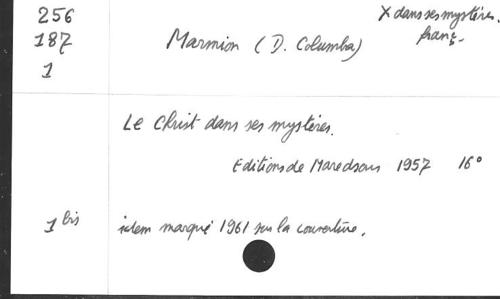 256
187
1
Marmion (D. Columba)
X dans ses mystères.
franç.
Le Christ dans ses mystères.
Editions de Maredsous 1957 16°
1 bis idem marqué 1961 sur la couverture.